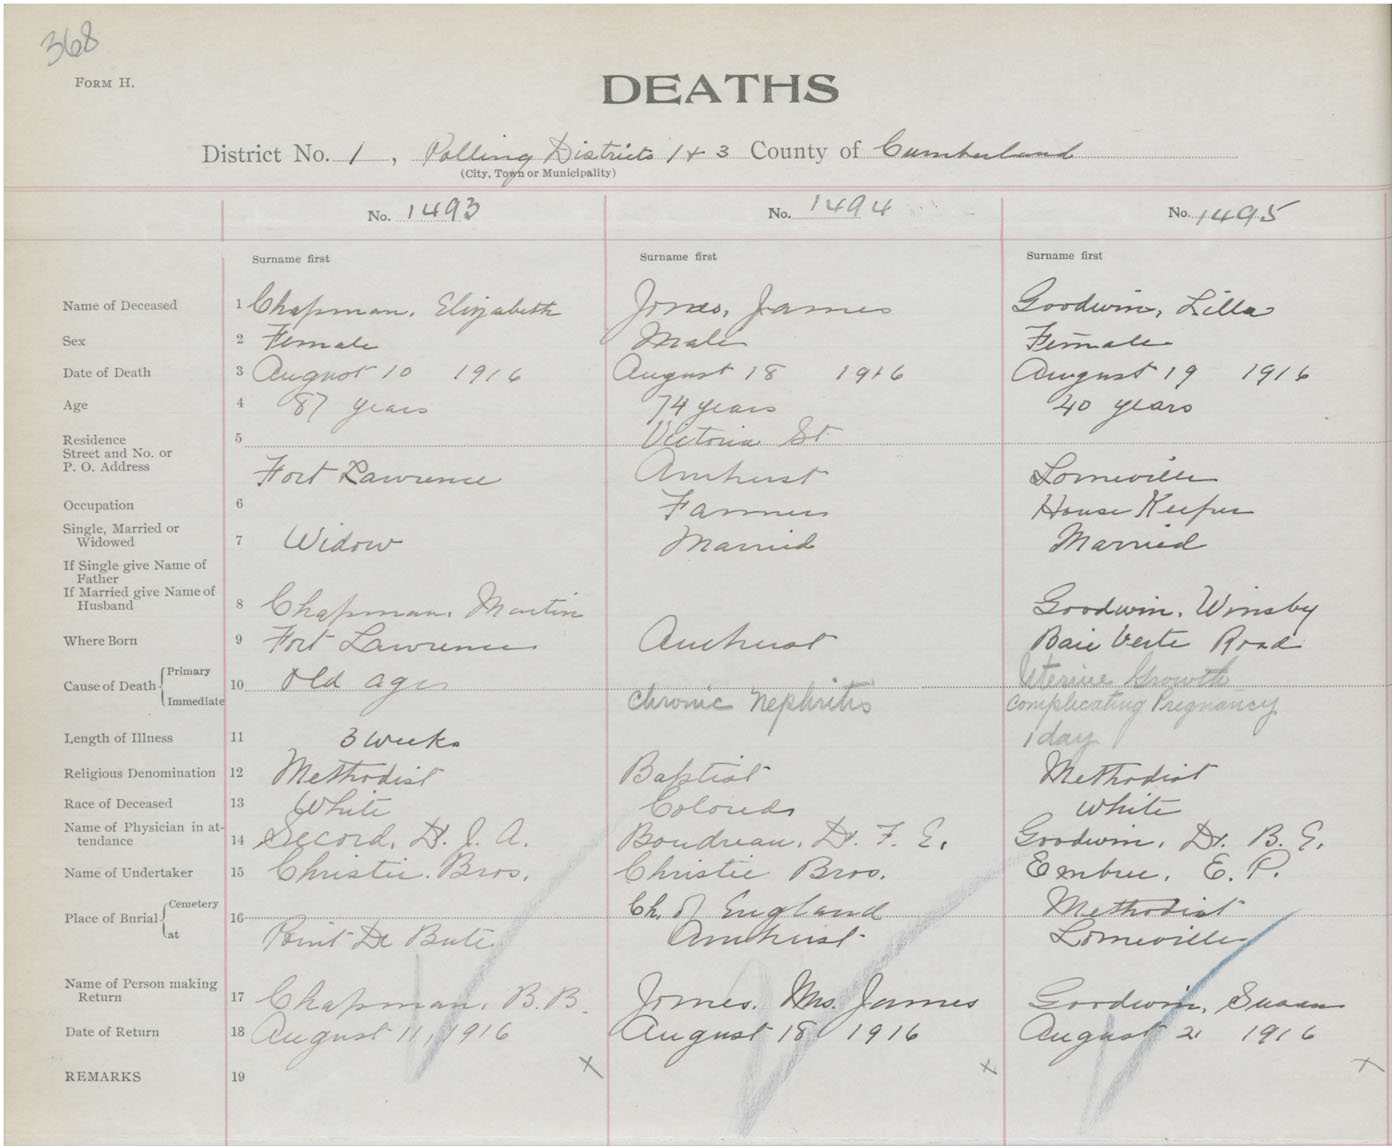 368
FORM H.
DEATHS
District No. 1, Polling Districts 1 + 3 County of Cumberland
(City, Town or Municipality)
No. 1493 No. 1494 No. 1495
Surname first Surname first Surname first
Name of Deceased 1 Chapman, Elizabeth Jones, James Goodwin, Lilla
Sex 2 Female Male Female
Date of Death 3 August 10 1916 August 18 1916 August 19 1916
Age 4 87 years 74 years 40 years
Residence 5 Victoria St
Street and No. or
P. O. Address Fort Lawrence Amherst Lorneville
Occupation 6 Farmer House Keeper
Single, Married or
Widowed 7 Widow Married Married
If Single give Name of
Father
If Married give Name of
Husband 8 Chapman, Martin Goodwin, Winsby
Where Born 9 Fort Lawrence Amherst Baie Verte Road
Cause of Death { Primary 10 Old age Uterine Growth
Immediate Chronic Nephritis Complicating Pregnancy
Length of Illness 11 3 weeks 1 day
Religious Denomination 12 Methodist Baptist Methodist
Race of Deceased 13 White Colored White
Name of Physician in at-
tendance 14 Secord, Dr. J. A. Boudreau, Dr. F. E. Goodwin, Dr. B. E.
Name of Undertaker 15 Christie Bros. Christie Bros. Embree, E. P.
Place of Burial { Cemetery 16 Ch. of England Methodist
at Point De Bute Amherst Lorneville
Name of Person making
Return 17 Chapman, B. B. Jones, Mrs. James Goodwin, Susan
Date of Return 18 August 11, 1916 August 18 1916 August 21 1916
REMARKS 19 x x x